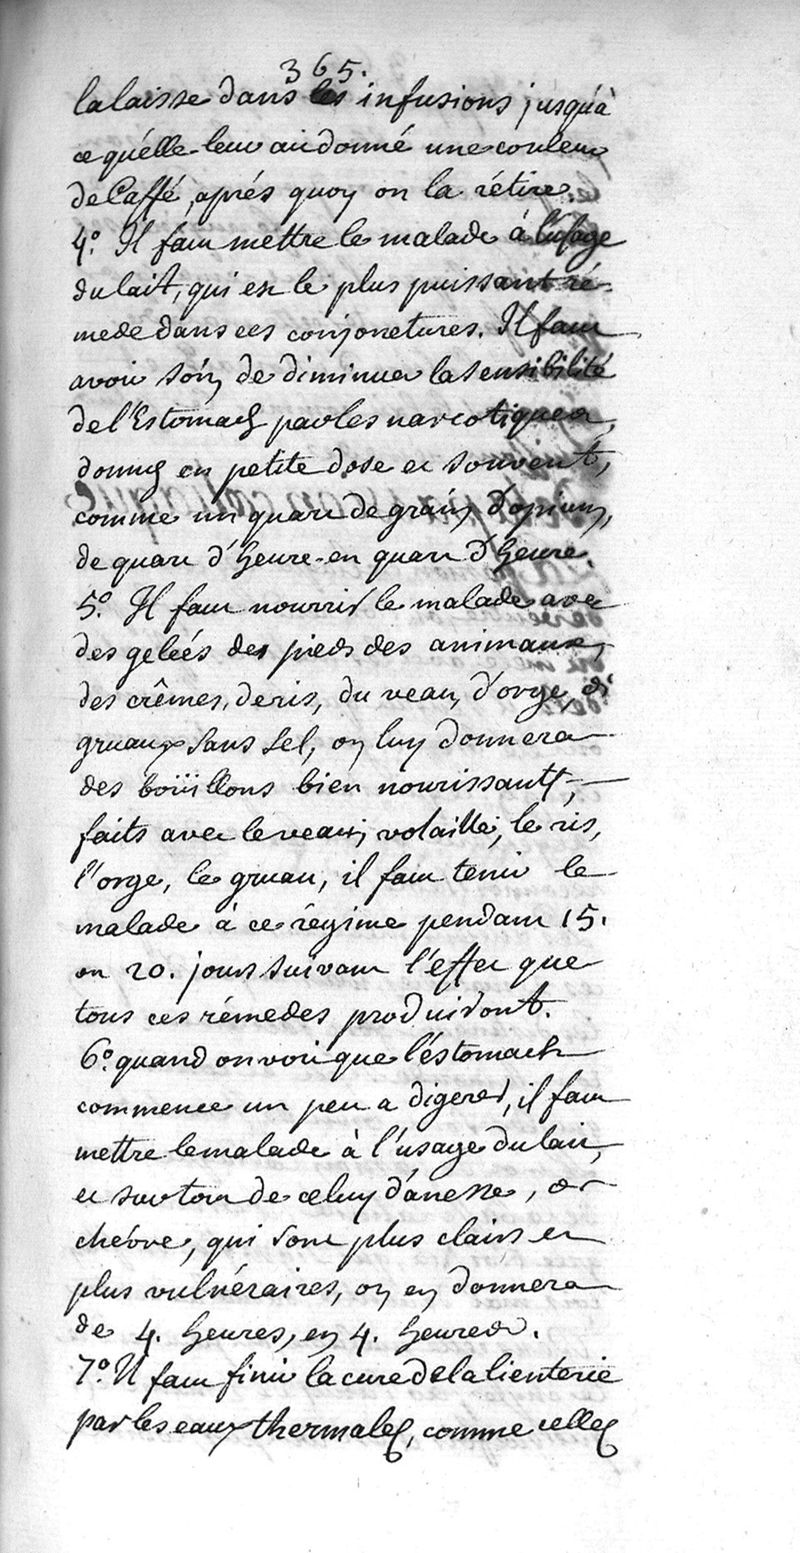 365.
la laisse dans les infusions jusqu'à
ce qu'elle leur ait donné une couleur
de Caffé, aprés quoy on la rétire.
4.° Il faut mettre le malade à l'usage
du lait, qui est le plus puissant ré-
mede dans ces conjonctures. Il faut
avoir soin de diminuer la sensibilité
de l'Estomach par les narcotiques,
donnés en petite dose et souvent,
comme un quart de grain d'opium,
de quart d'heure en quart d'heure.
5.° Il faut nourrir le malade avec
des geleés des pieds des animaux,
des crêmes, de ris, du veau, d'orge, di
gruaux sans sel, on luy donnera
des boüillons bien nourissants,
faits avec le veau, volaille, le ris,
l'orge, le gruau, il faut tenir le
malade à ce régime pendant 15.
ou 20. jours suivant l'effet que
tous ces rémedes produiront.
6.° quand on voit que l'éstomach
commence un peu a digerer, il faut
mettre le malade à l'usage du lait,
et surtout de celuy d'anesse, or
chévre, qui sont plus clairs et
plus vulnéraires, on en donnera
de 4. heures, en 4. heures.
7.° Il faut finir la cure de la lienterie
par les eaux thermales, comme celles